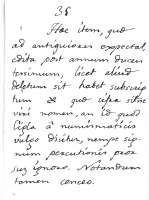 38
Hac item, quod
ad antiquiores expectat,
edita post annum ducen
tesimum, licet aliud
deletum sit habet subscrip
tum & quod cifra sit
vivi nomen, an id quod
Cifla à numismaticis
vulgo dicitur, nempe sig
num percutionis pror
sus ignoro. Notandum
tamen censeo.